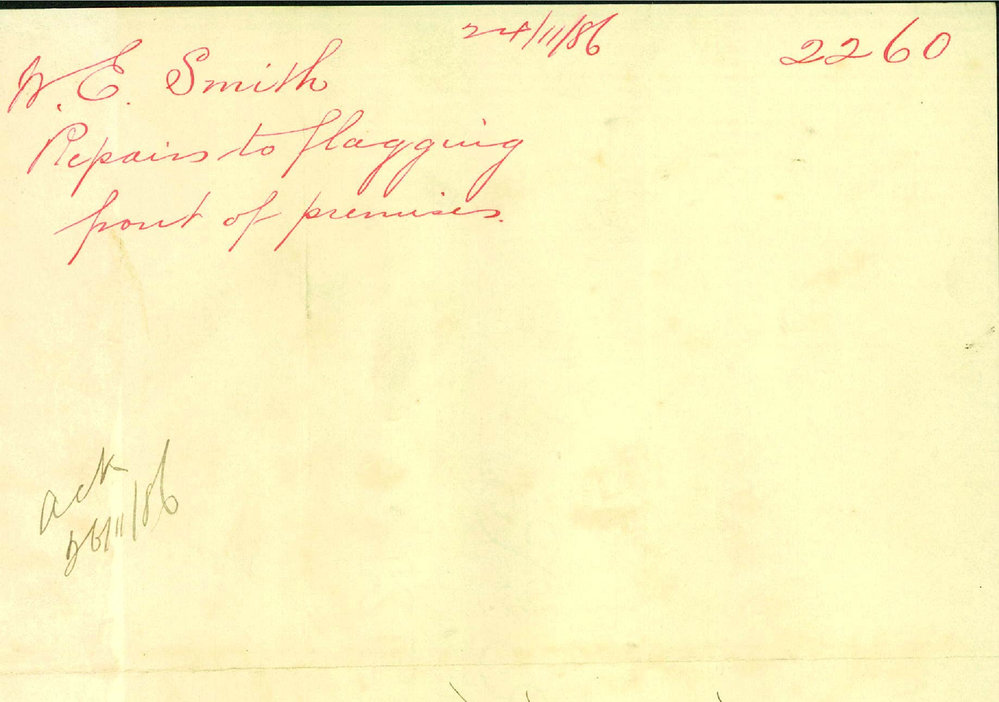 24/11/86
2260
W. E. Smith
Repairs to flagging
front of premises.
Ack
26/11/86